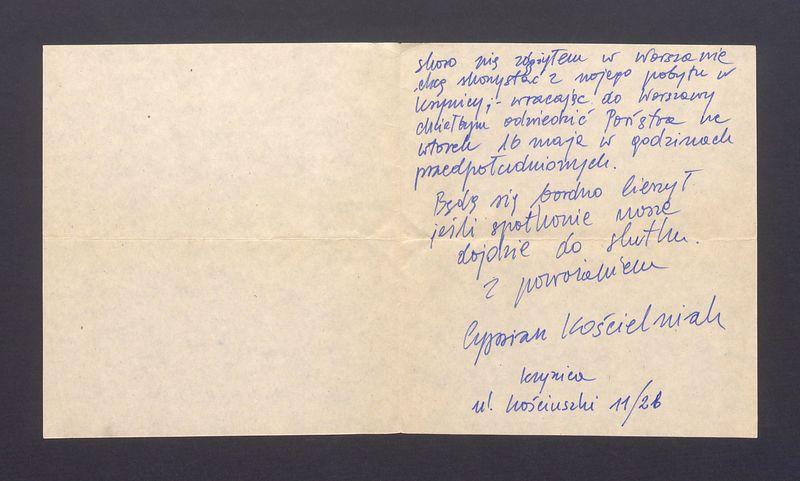 skoro nie zdążyłem w Warszawie
chcę skorzystać z mojego pobytu w
Krynicy; - wracając do Warszawy
chciałbym odwiedzić Państwa we
wtorek 16 maja w godzinach
przedpołudniowych.
Będę się bardzo cieszył
jeśli spotkanie nasze
dojdzie do skutku.
z poważaniem
Cyprian Kościelniak
Krynica
ul. Kościuszki 11/26